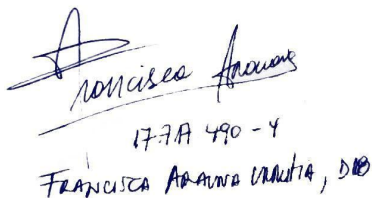 Francisca Araouna
17.7A 490-4
FRANCISCA ARAUNA URRUTIA, DIB